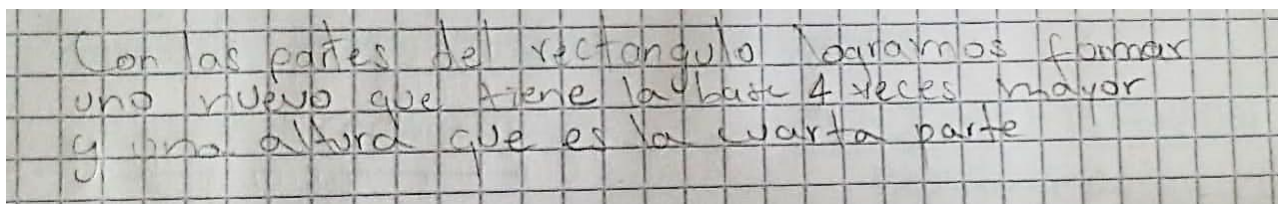 Con las partes del rectangulo logramos formar
uno nuevo que tiene la base 4 veces mayor
y una altura que es la cuarta parte